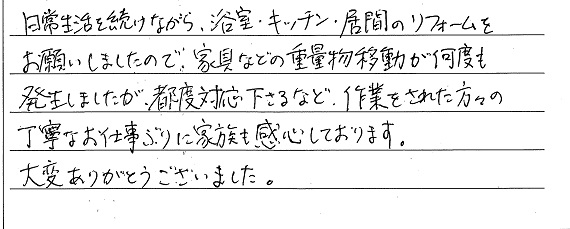 日常生活を続けながら、浴室・キッチン・居間のリフォームを
お願いしましたので、家具などの重量物移動が何度も
発生しましたが、都度対応下さるなど、作業をされた方々の
丁寧なお仕事ぶりに家族も感心しております。
大変ありがとうございました。